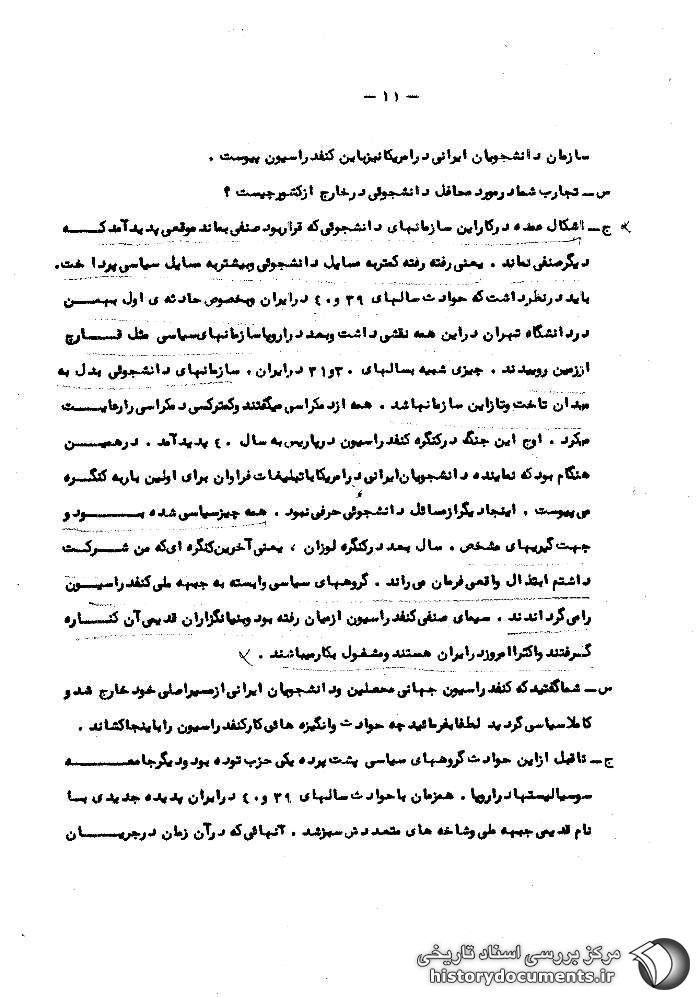 — ۱۱ —
سازمان دانشجویان ایرانی درامریکانیزباین کنفدراسیون پیوست .
س ــ تجارب شمادرمورد محافل دانشجوئی درخارج ازکشورچیست ؟
ج ــ اشکال عمده درکاراین سازمانهای دانشجوئی که قراربود صنفی بماند موقعی پدید آمد که
دیگرصنفی نماند . یعنی رفته رفته کمتربه مسایل دانشجوئی وبیشتربه مسایل سیاسی پرداخت .
باید درنظرداشت که حوادث سالهای ۳۹ و۴۰ درایران وبخصوص حادثه ی اول بهمن
دردانشگاه تهران دراین همه نقشی داشت وبعد دراروپاسازمانهای سیاسی مثل قارچ
اززمین روییدند . چیزی شبیه بسالهای ۳۰و۳۱ درایران . سازمانهای دانشجوئی بدل به
میدان تاخت وتازاین سازمانهاشد . همه ازدمکراسی میگفتند وکمترکسی دمکراسی رارعایت
میکرد . اوج این جنگ درکنگره کنفدراسیون درپاریس به سال ۴۰ پدید آمد . درهمین
هنگام بود که نماینده دانشجویان ایرانی درامریکاباتبلیغات فراوان برای اولین باربه کنگره
می پیوست . اینجادیگرازمسائل دانشجوئی حرفی نبود . همه چیزسیاسی شده بود و
جهت گیریهای مشخص . سال بعد درکنگره لوزان ، یعنی آخرین کنگره ای که من شرکت
داشتم ابتذال واقعی فرمان می راند . گروههای سیاسی وابسته به جبهه ملی کنفدراسیون
رامی گرداندند . سیمای صنفی کنفدراسیون ازمیان رفته بود وبنیانگزاران قدیمی آن کناره
گرفتند واکثراامروزدرایران هستند ومشغول بکارمیباشند .
س ــ شماگفتید که کنفدراسیون جهانی محصلین ودانشجویان ایرانی ازمسیراصلی خود خارج شد و
کاملاسیاسی گردید لطفابفرمائید چه حوادث وانگیزه هائی کارکنفدراسیون راباینجاکشاند .
ج ــ تاقبل ازاین حوادث گروههای سیاسی پشت پرده یکی حزب توده بود ودیگرجامعه
سوسیالیستهادراروپا . همزمان باحوادث سالهای ۳۹ و۴۰ درایران پدیده جدیدی با
نام قدیمی جبهه ملی وشاخه های متعددش سبزشد . آنهائی که درآن زمان درجریان
مرکز بررسی اسناد تاریخی
historydocuments.ir